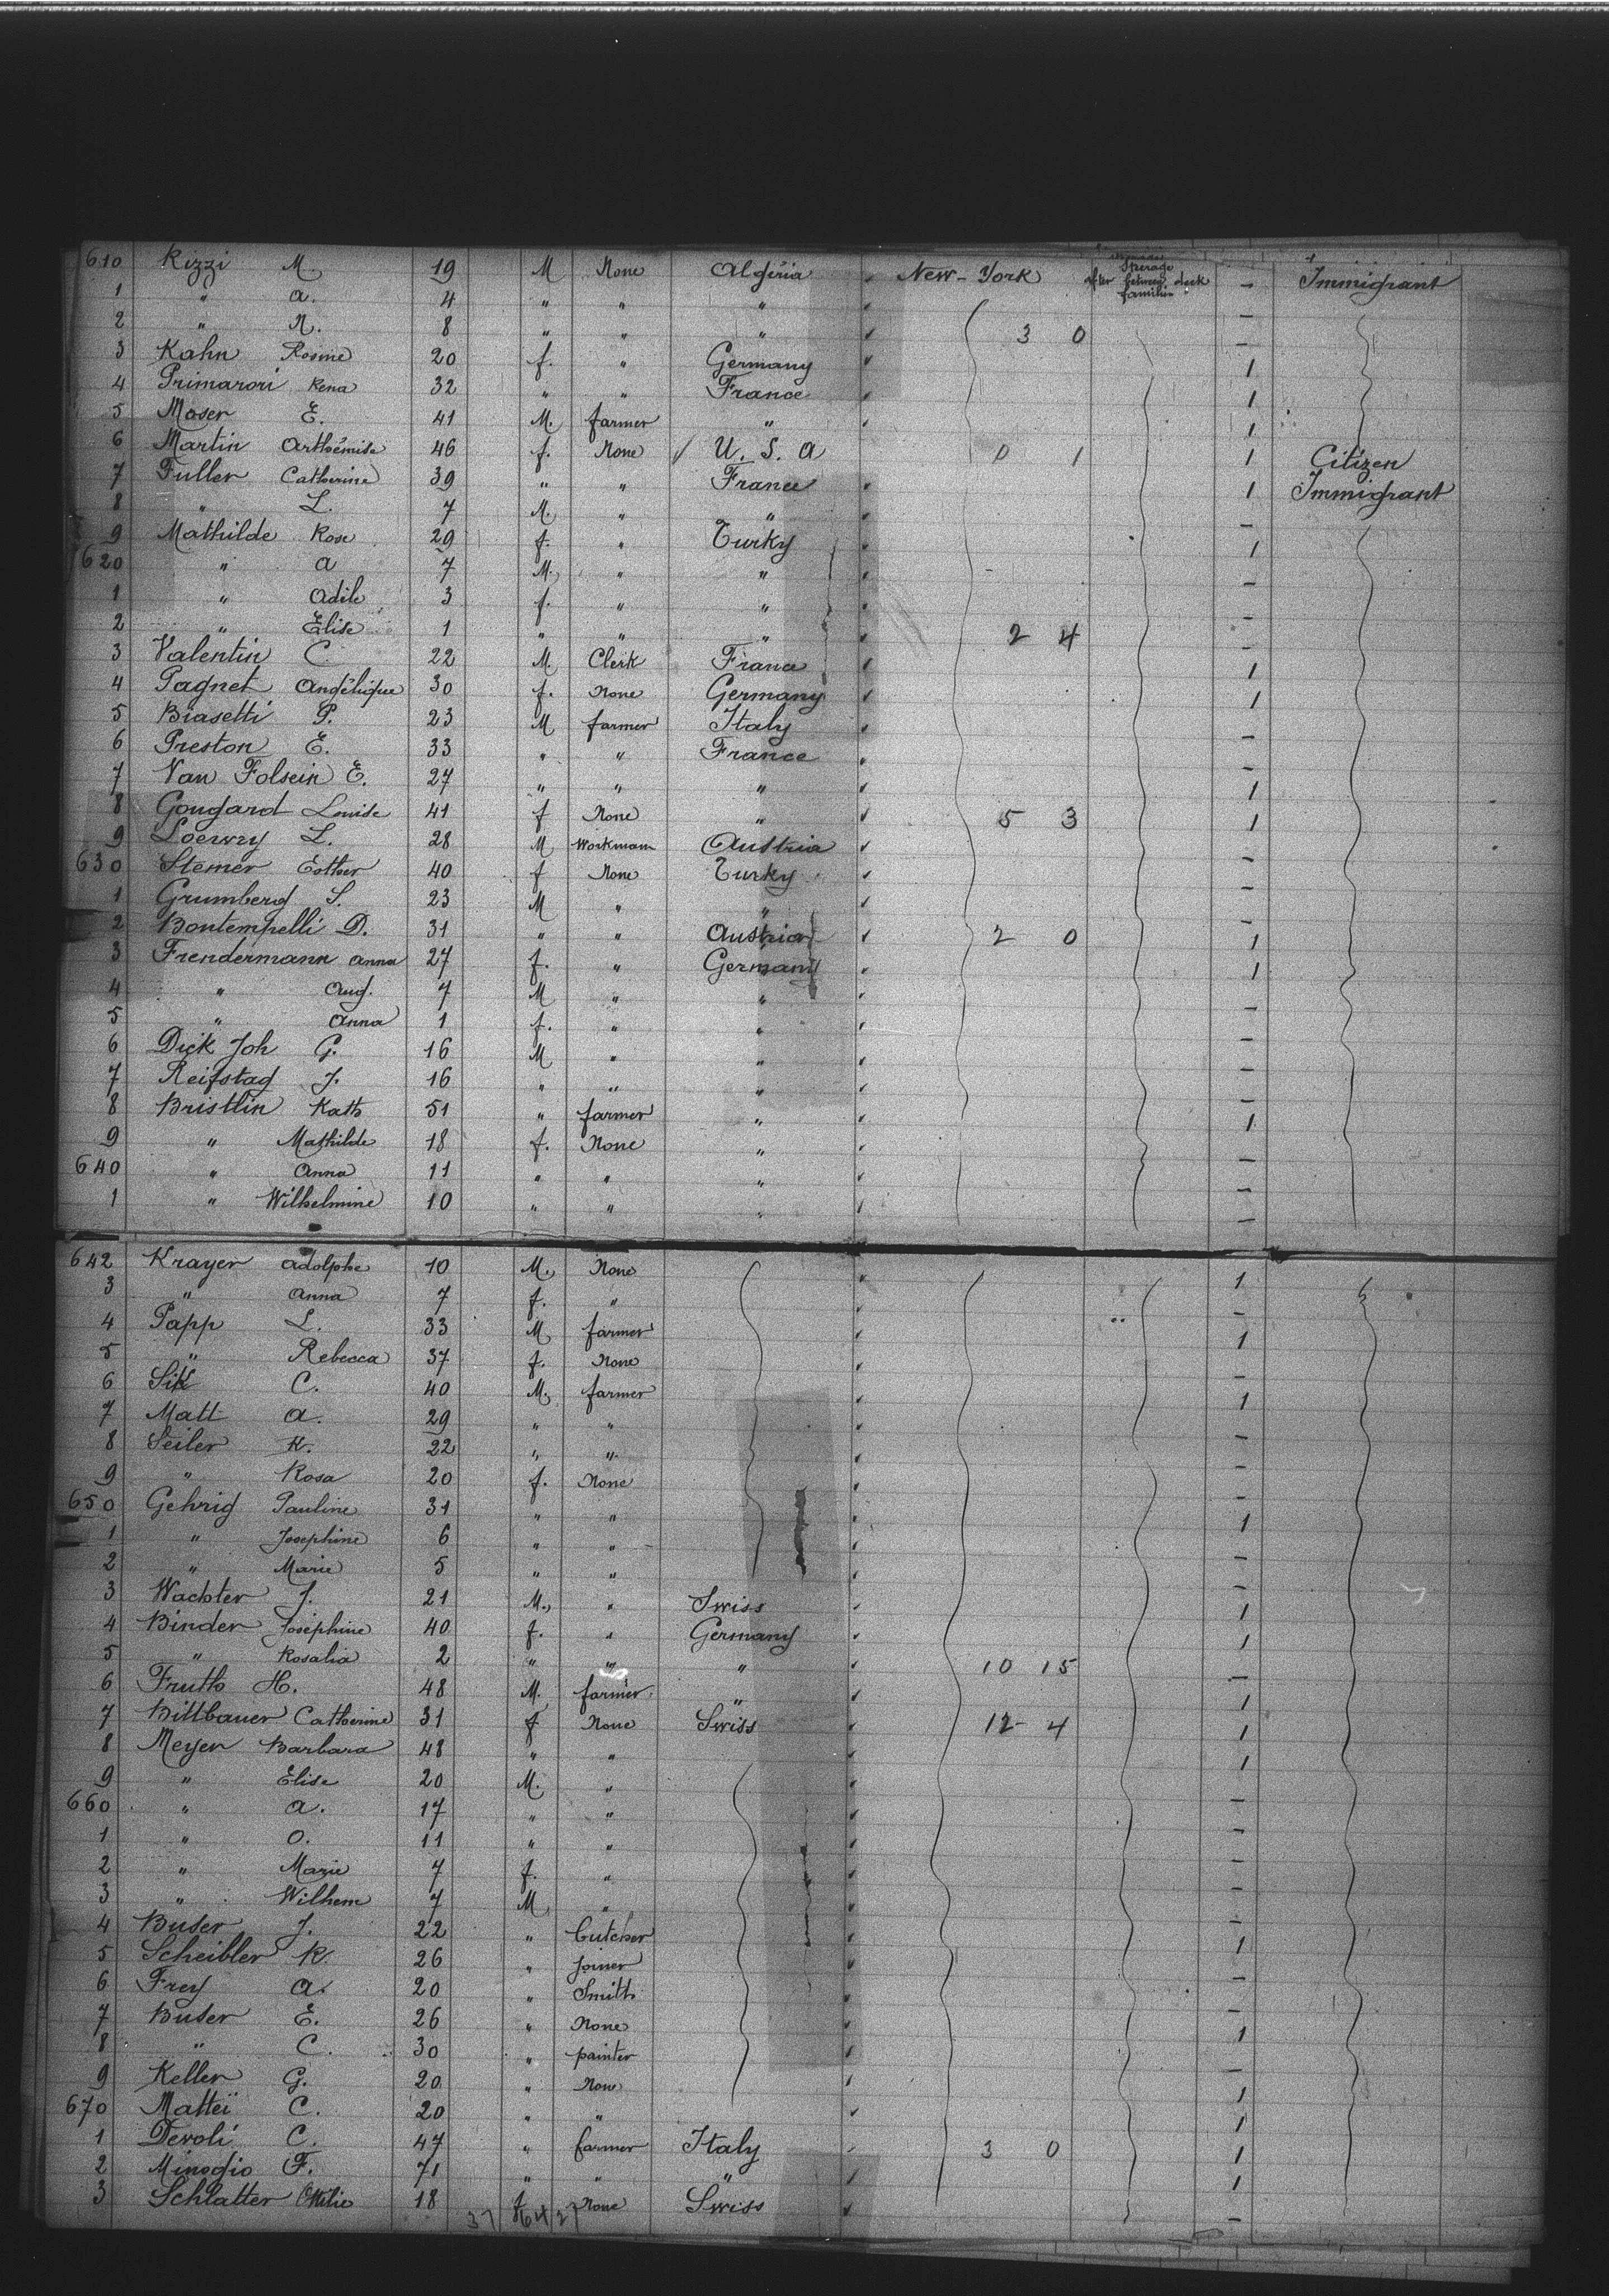 610 Rizzi M. 19 M None Algéria New-York Sterage after between deck families — Immigrant
1 " A. 4 " " " —
2 " N. 8 " " " 3 0 —
3 Kahn Rosine 20 f. " Germany 1
4 Primarori Rena 32 " " France 1
5 Moser E. 41 M. farmer " 1
6 Martin Arthémise 46 f. None U. S. A 0 1 1 Citizen
7 Fuller Catherine 39 " " France 1 Immigrant
8 " L. 7 M. " " —
9 Mathilde Rose 29 f. " Turky 1
620 " A 7 M. " " —
1 " Adile 3 f. " " —
2 " Elise 1 " " " 2 4 —
3 Valentin C. 22 M. Clerk France 1
4 Pagnet Angélique 30 f. None Germany 1
5 Biasetti P. 23 M farmer Italy —
6 Preston E. 33 " " France —
7 Van Folsein E. 27 " " " 1
8 Gougard Louise 41 f None " 5 3 1
9 Loewzy L. 28 M Workmann Austria —
630 Stemer Esther 40 f None Turky —
1 Grumberg S. 23 M " " —
2 Bontempelli D. 31 " " Austria 2 0 1
3 Frendermann Anna 27 f. " Germany 1
4 " Aug. 7 M " " —
5 " Anna 1 f. " " —
6 Dick Joh G. 16 M " " —
7 Reifstag J. 16 " " " —
8 Bristlin Kath 51 " farmer " 1
9 " Mathilde 18 f. None " —
640 " Anna 11 " " " —
1 " Wilhelmine 10 " " " —
642 Krayer Adolphe 10 M. None 1
3 " Anna 7 f. " —
4 Papp L. 33 M farmer 1
5 " Rebecca 37 f. None —
6 Sik C. 40 M. farmer 1
7 Matt A. 29 " " —
8 Seiler K. 22 " " —
9 " Rosa 20 f. None —
650 Gehrig Pauline 31 " " 1
1 " Josephine 6 " " —
2 " Marie 5 " " —
3 Wachter J. 21 M. " Swiss 1
4 Binder Joséphine 40 f. " Germany 1
5 " Rosalia 2 " " " 10 15 —
6 Fruth H. 48 M. farmer " 1
7 Bittbauer Catherine 31 f None Swiss 12 4 1
8 Meyer Barbara 48 " " 1
9 " Elise 20 M. " —
660 " A. 17 " " —
1 " O. 11 " " —
2 " Marie 7 f. " —
3 " Wilhem 7 M " —
4 Buser J. 22 " butcher 1
5 Scheibler K. 26 " Joiner —
6 Frey A. 20 " Smith —
7 Buser E. 26 " None 1
8 " C. 30 " painter —
9 Keller G. 20 " None 1
670 Matteï C. 20 " " 1
1 Devoli C. 47 " farmer Italy 3 0 1
2 Minogio F. 71 " " " 1
3 Schlatter Ottilie 18 f None Swiss —